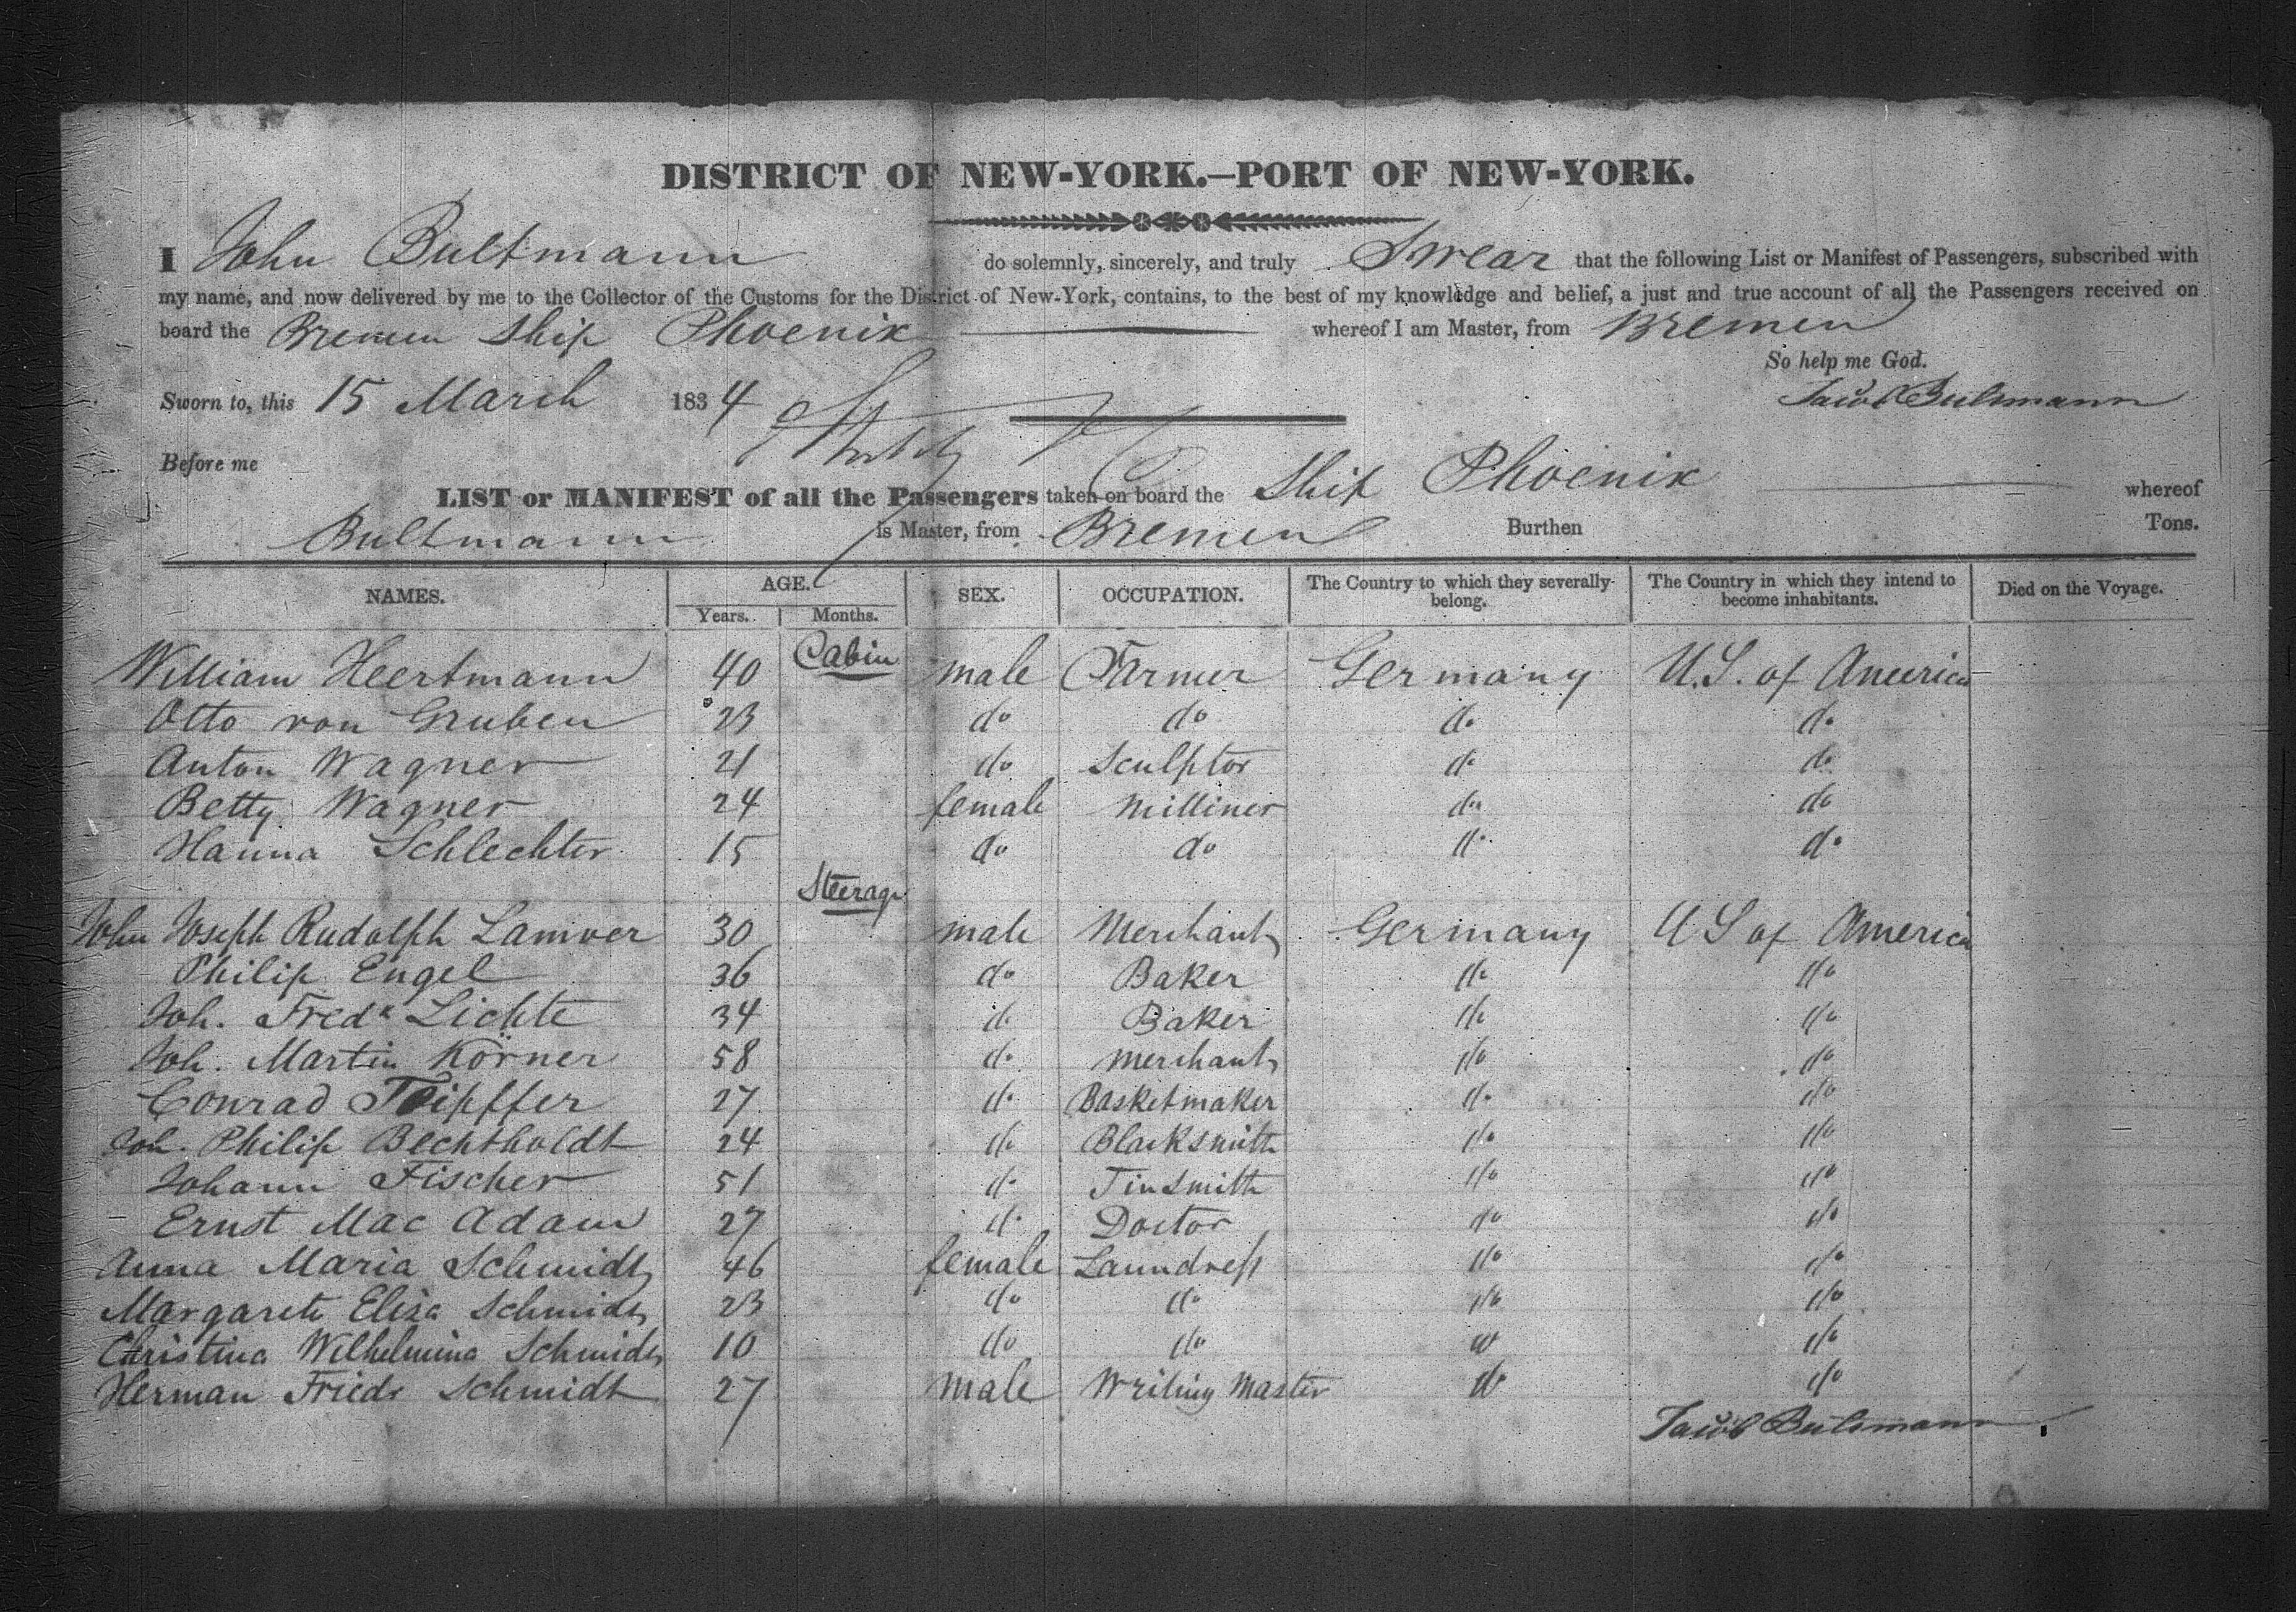 DISTRICT OF NEW-YORK.—PORT OF NEW-YORK.
I John Bultmann do solemnly, sincerely, and truly Swear that the following List or Manifest of Passengers, subscribed with
my name, and now delivered by me to the Collector of the Customs for the District of New-York, contains, to the best of my knowledge and belief, a just and true account of all the Passengers received on
board the Bremen Ship Phoenix whereof I am Master, from Bremen
So help me God.
Sworn to, this 15 March 1834 Jacob Bultmann
Before me
LIST or MANIFEST of all the Passengers taken on board the Ship Phoenix whereof
Bultmann is Master, from Bremen Burthen Tons.
NAMES. AGE. Years. Months. SEX. OCCUPATION. The Country to which they severally belong. The Country in which they intend to become inhabitants. Died on the Voyage.
Cabin
William Heertmann 40 male Farmer Germany U.S. of America
Otto von Gruben 23 do do do do
Anton Wagner 21 do Sculptor do do
Betty Wagner 24 female Milliner do do
Hanna Schlechter 15 do do do do
Steerage
John Joseph Rudolph Lamver 30 male Merchant Germany U S of America
Philip Engel 36 do Baker do do
Joh. Fredk Lichte 34 do Baker do do
Joh. Martin Körner 58 do Merchant do do
Conrad 27 do Basketmaker do do
Joh. Philip Bechtholdt 24 do Blacksmith do do
Johann Fischer 51 do Tinsmith do do
Ernst Mac Adam 27 do Doctor do do
Anna Maria Schmidt 46 female Laundress do do
Margarete Eliza Schmidt 23 do do do do
Christina Wilhelmina Schmidt 10 do do do do
Herman Friedr Schmidt 27 male Writing Master do do
Jacob Bultmann